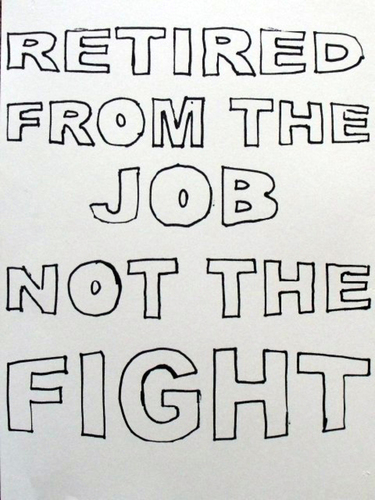 RETIRED
FROM THE
JOB
NOT THE
FIGHT